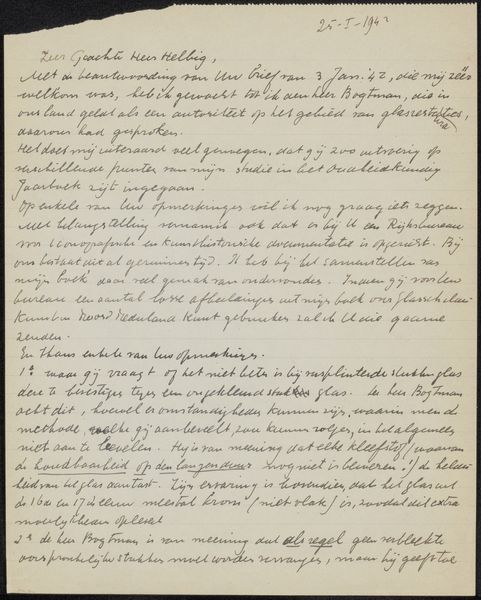 25-I-1942
Zeer Geachte Heer Helbig,
Met de beantwoording van Uw brief van 3 Jan. '42, die mij zéér
welkom was, heb ik gewacht tot ik den heer Bogtman, die in
ons land geldt als een autoriteit op het gebied van glasrestauraties,
daarover had gesproken.
Het doet mij uiteraard veel genoegen, dat gij zoo uitvoerig op
verschillende punten van mijn studie in het Oudheidkundig
Jaarboek zijt ingegaan.
Op enkele van Uw opmerkingen wil ik nog graag iets zeggen.
Met belangstelling vernam ik ook dat er bij U een Rijksbureau
voor iconografische en kunsthistorische documentatie is opgericht. Bij
ons bestaat dit al geruimen tijd. Ik heb bij het samenstellen van
mijn boek daar veel gemak van ondervonden. Indien gij voor Uw
bureau een aantal losse afbeeldingen uit mijn boek over glasschilder-
kunst in Noord Nederland kunt gebruiken zal ik U die gaarne
zenden.
En thans enkele van Uw opmerkingen.
1e waar gij vraagt of het niet beter is bij versplinterde stukken glas
deze te bevestigen tegen een ongekleurd stuk glas. De heer Bogtman
acht dit, hoewel er omstandigheden kunnen zijn, waarin men de
methode, welke gij aanbeveelt, zou kunnen volgen, in het algemeen
niet aan te bevelen. Hij is van meening dat elke kleefstof (waarvan
de houdbaarheid op den langen duur nog niet is bewezen!) de helder-
heid van het glas aantast. Zijn ervaring is bovendien, dat het glas uit
de 16de en 17de eeuw meestal krom (niet vlak) is, zoodat dit extra
moeilijkheden oplevert
2e de heer Bogtman is van meening dat als regel geen verbleekte
oorspronkelijke stukken moet worden vervangen, maar hij geeft toe